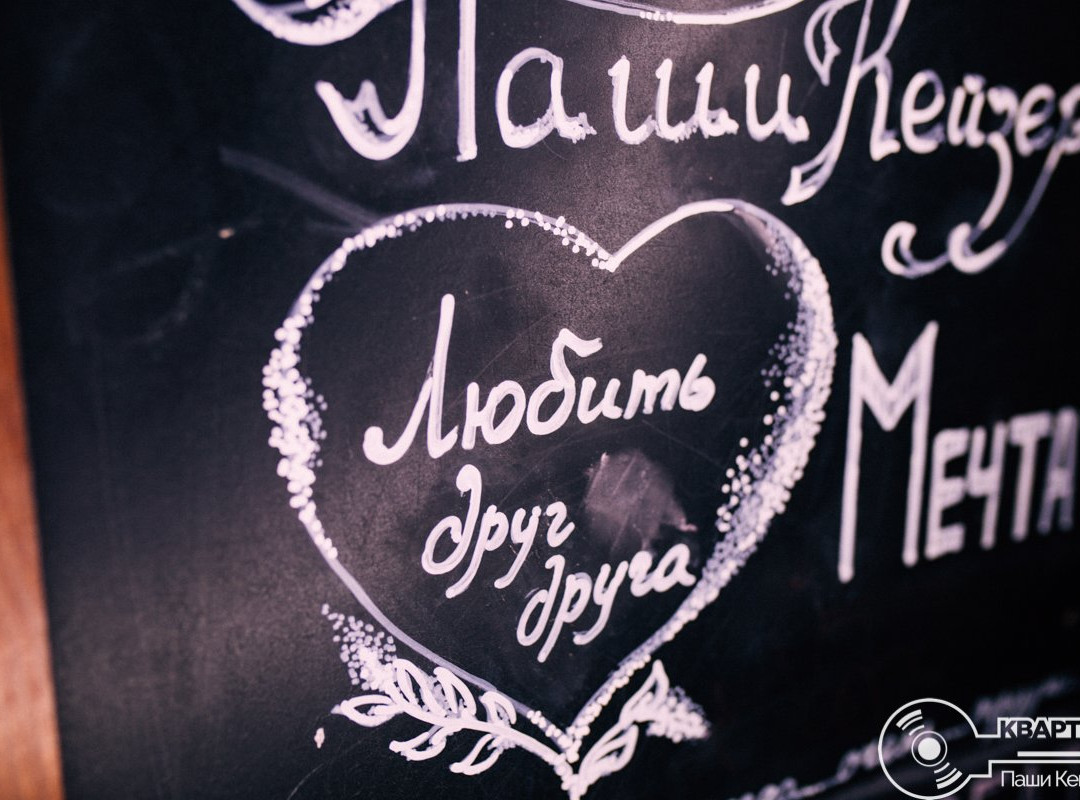 Паши Кейзер
Любить
друг
друга
Мечта
КВАРТ
Паши Кей